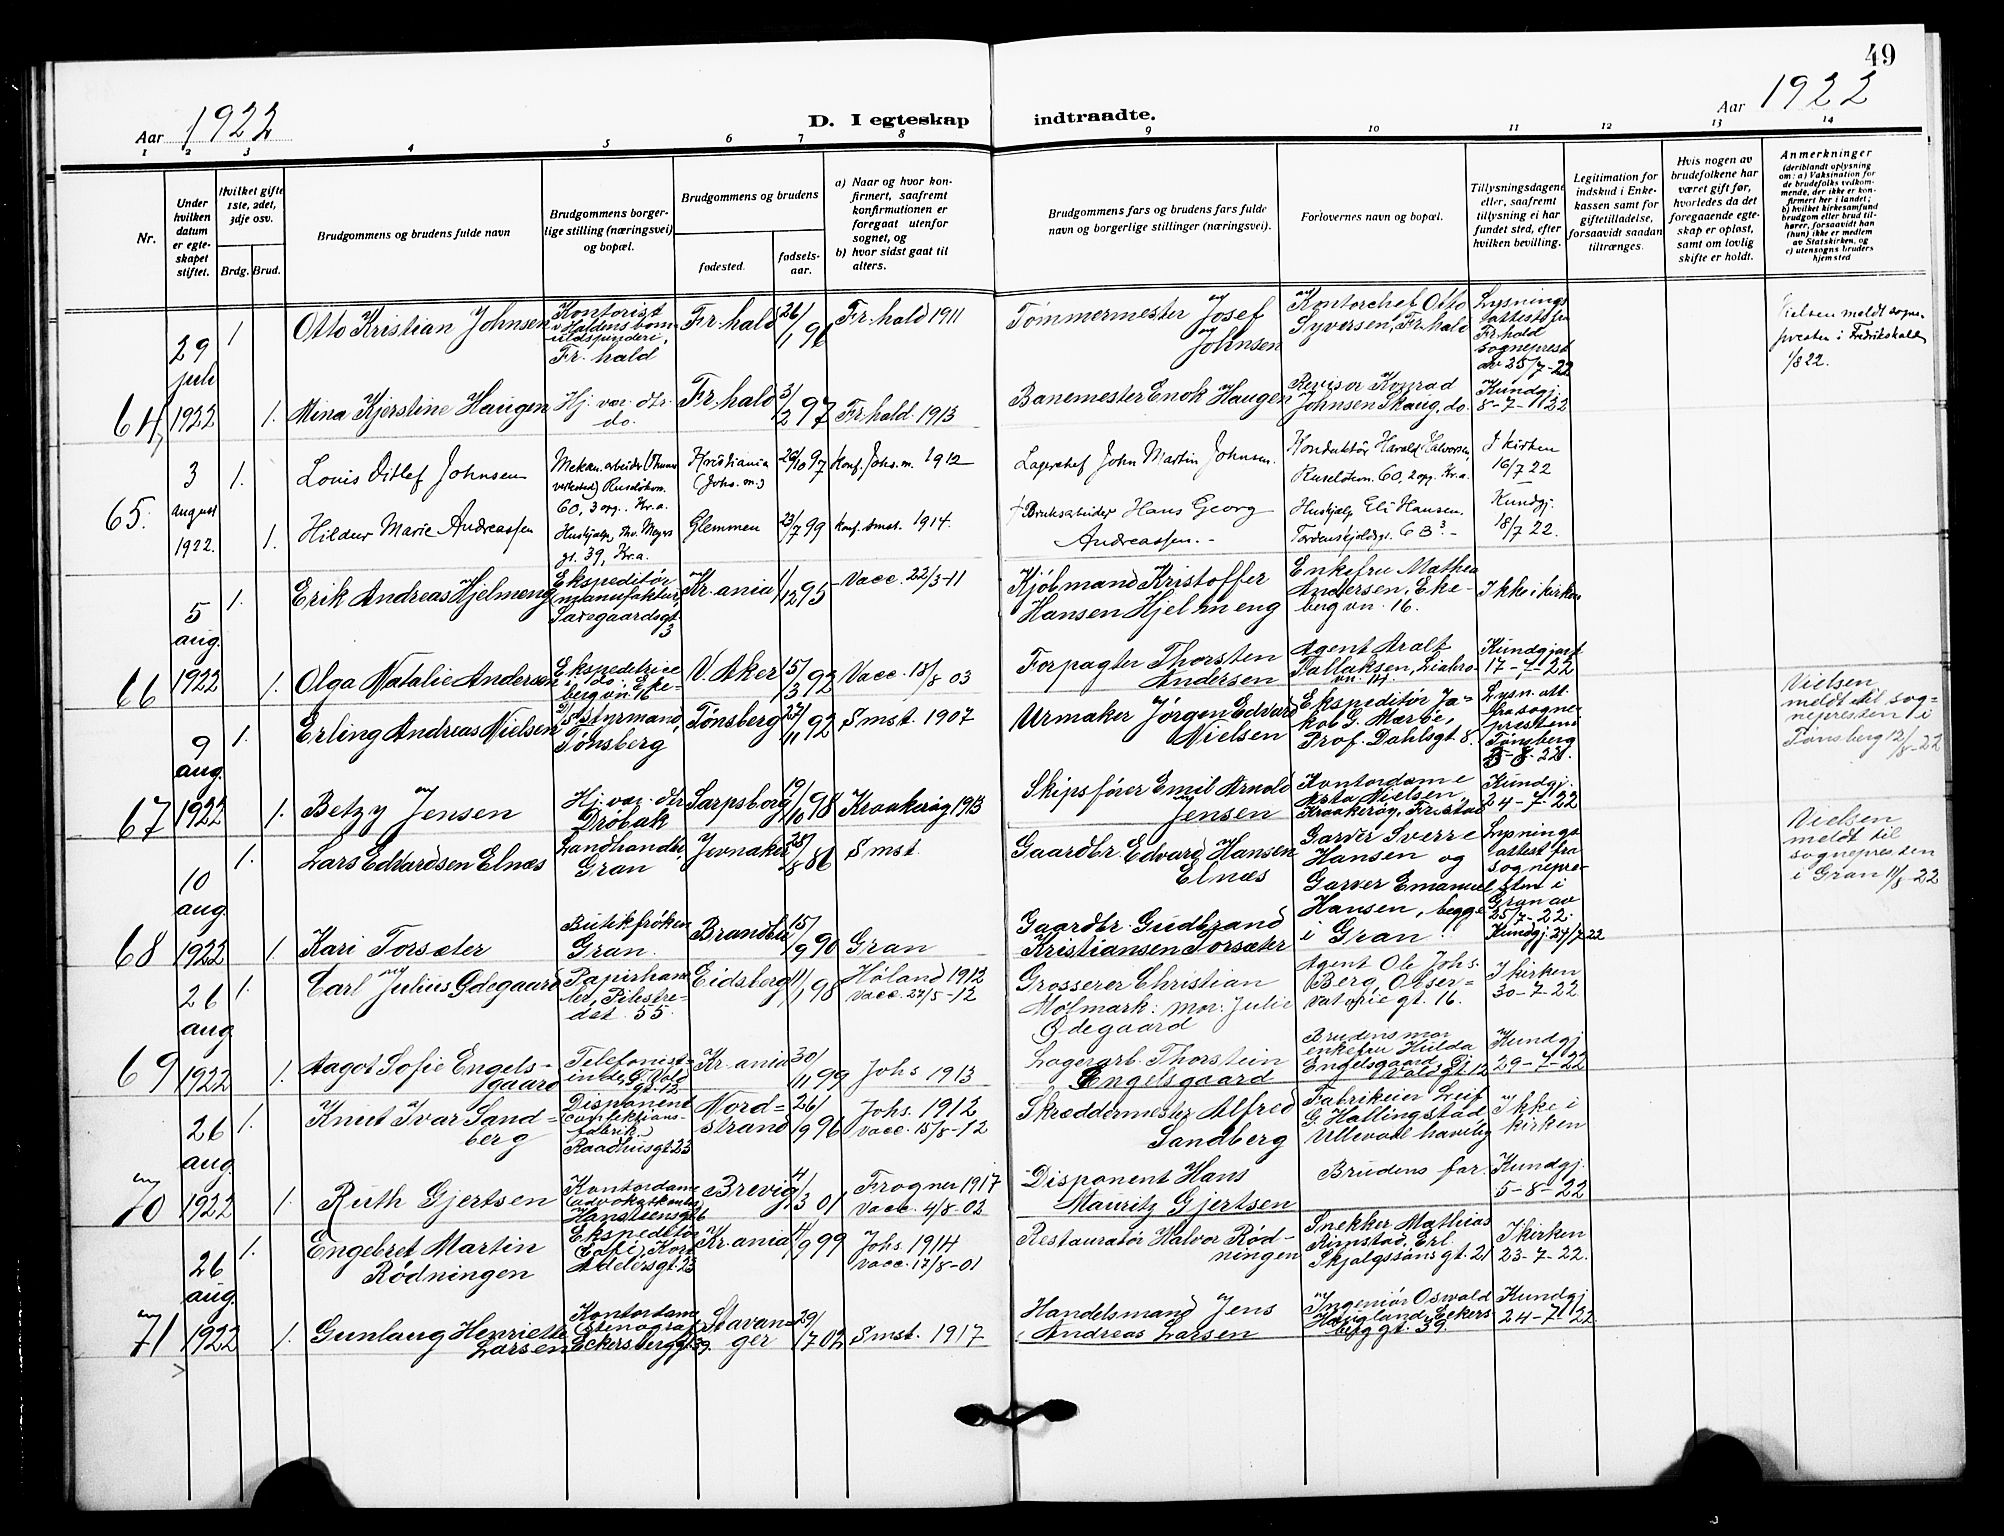 49
Aar 1922
D. I egteskap indtraadte.
Aar 1922
1 2 3 4 5 6 7 8 9 10 11 12 13 14
Nr.
Under hvilken datum er egteskapet stiftet.
Hvilket gifte 1ste, 2det, 3dje osv.
Brdg. Brud.
Brudgommens og brudens fulde navn
Brudgommens borgerlige stilling (næringsvei) og bopæl.
Brudgommens og brudens
fødested.
fødselsaar.
a) Naar og hvor konfirmert, saafremt konfirmationen er foregaat utenfor sognet, og
b) hvor sidst gaat til alters.
Brudgommens fars og brudens fars fulde navn og borgerlige stillinger (næringsvei).
Forlovernes navn og bopæl.
Tillysningsdagene eller, saafremt tillysning ei har fundet sted, efter hvilken bevilling.
Legitimation for indskud i Enkekassen samt for giftetilladelse, forsaavidt saadan tiltrænges.
Hvis nogen av brudefolkene har været gift før, hvorledes da det foregaaende egteskap er opløst, samt om lovlig skifte er holdt.
Anmerkninger
(deriblandt oplysning om: a) Vaksination for de brudefolks vedkommende, der ikke er konfirmert her i landet; b) hvilket kirkesamfund brudgom eller brud tilhører, forsaavidt han (hun) ikke er medlem av Statskirken, og c) utensogns bruders hjemsted
64, 29 juli 1922
1 Otto Kristian Johnsen
Kontorist v. Haldens bomuldspinderi, Fr.hald
Fr.hald 26/1 96
Fr.hald 1911
Tømmermester Josef Johnsen
Kontorchef Otto Syversen, Fr.hald
Lysningsattest fra Fr.hald sogneprest av 25/7-22
Nielsen meldt sognepresten i Fredrikshald 1/8 22.
1. Mina Kjerstine Haugen
Hj. vær. dtr. do.
Fr.hald 3/2 97
Fr.hald. 1913
Banemester Enok Haugen
Revisor Konrad Johnsen Skaug, do.
Kundgj. 8-7-1922
65. 3 august 1922.
1. Louis Ditlef Johnsen
Mekan. arbeider (Thunes verksted) Ruseløkvn. 60, 3 opg. Kr.a.
Kristiania (Johs. m.) 26/10 97
Konf. Johs. m. 1912
Lagerchef John Martin Johnsen.
Konduktør Harald Halvorsen, Ruseløkvn. 60, 2 opg. Kr.a.
I kirken 16/7 22
1. Hildur Marie Andreassen
Hushjælp, Th. Meyers gt. 39, Kr.a.
Glemmen 23/7 99
Konf. smst. 1914.
† Bruksarbeider Hans Georg Andreassen.-
Hushjælp Eli Hansen. Tordenskjoldsgt. 63³.-
Kundgj. 18/7 22.
66 5 aug. 1922
1. Erik Andreas Hjelmeng
Ekspeditør (manufaktur), Saxegaardsgt. 3
Kr.ania 1/12 95
Vacc. 22/3-11
Kjøbmand Kristoffer Hansen Hjelmeng
Enkefru Mathea Andersen, Ekebergvn. 16.
Ikke i kirken
1. Olga Natalie Andersen
Ekspeditrice i do. Ekebergvn 16
V. Aker 15/3 92
Vacc. 15/8 03
Forpagter Thorsten Andersen
Agent Aralt Tallaksen, Liabrovn. 14.
Kundgjort 17-7-22
67 9 aug. 1922
1. Erling Andreas Nielsen
Styrmand, Tønsberg
Tønsberg 27/11 92
Smst. 1907
Urmaker Jørgen Edvard Nielsen
Ekspeditør Jakob G. Mærbe, Prof. Dahlsgt. 8.
Lysn. att. fra sognepresten i Tønsberg 5-8-22.
Nielsen meldt til sognepresten i Tønsberg 12/8-22
1. Betzy Jensen
Hj. vær. dtr. Drøbak
Sarpsborg 19/10 98
Kraakerøy 1913
Skipsfører Emil Arnold Jensen
Kontordame Asta Nielsen, Kraakerøy, Fr.stad
Kundgj. 24-7-22
68 10 aug. 1922
1. Lars Edvardsen Elnæs
Landhandler, Gran
Jevnaker 28/8 86
Smst.
Gaardbr. Edvard Hansen Elnæs
Garver Sverre Hansen og Garver Emanuel Hansen, begge i Gran
Lysningsattest fra sognepresten i Gran av 25/7-22.
Nielsen meldt til sognepresten i Gran 11/8-22
1 Kari Torsæter
Butikfrøken Gran.
Brandbu 15/9 90
Gran
Gaardbr. Gudbrand Kristiansen Torsæter
Kundgj. 24/7-22
69 26 aug 1922
1. Carl Julius Ødegaard
Papirhandler, Pilestredet. 55.
Eidsberg 11/1 98
Høland 1912 Vacc. 27/5-12
Grosserer Christian Mølmark: mor: Julie Ødegaard
Agent Ole Johs. Berg, Observatoriegt. 16.
I kirken 30-7-22
1. Aagot Sofie Engelsgaard
Telefonistinde, G. Voldgt. 12
Kr.ania 30/11 99
Johs 1913
Lagerarb. Thorstein Engelsgaard
Brudens mor enkefru Hilda Engelsgaard Voldsgt 12
Kundgj 29-7-22
70 26 aug. 1922
1. Knut Ivar Sandberg
Disponent (konfektionsfabrik) Raadhusgt. 23
Nordstrand 26/9 96
Johs. 1912 vacc. 15/8-12
Skræddermester Alfred Sandberg
Fabrikeier Leif G. Hallingstad, Ullevaal haveby
Ikke i kirken
1. Ruth Gjertsen
Kontordame (advokatkontor) Hansteensgt. 6
Brevig 4/3 01
Frogner 1917 Vacc. 4/8-02
Disponent Hans Mauritz Gjertsen
Brudens far.
Kundgj. 5-8-22
71 26 aug. 1922
1. Engebret Martin Rødningen
Ekspeditør (Café) Kort Adelersgt. 23
Kr.ania 4/9 99
Johs 1914 vacc. 17/8-01
Restauratør Halvor Rødningen
Snekker Mathias Rimstad, Erl. Skjalgssønsgt. 21
I kirken 23-7-22.
1. Gunlaug Henriette Larsen
Kontordame (Stenograf) Eckersberggt. 39.
Stavanger 29/7 02
Smst. 1917
Handelsmand Jens Andreas Larsen
Ingeniør Oswald Haugland, Eckersberggt. 39.
Kundgj 24-7-22